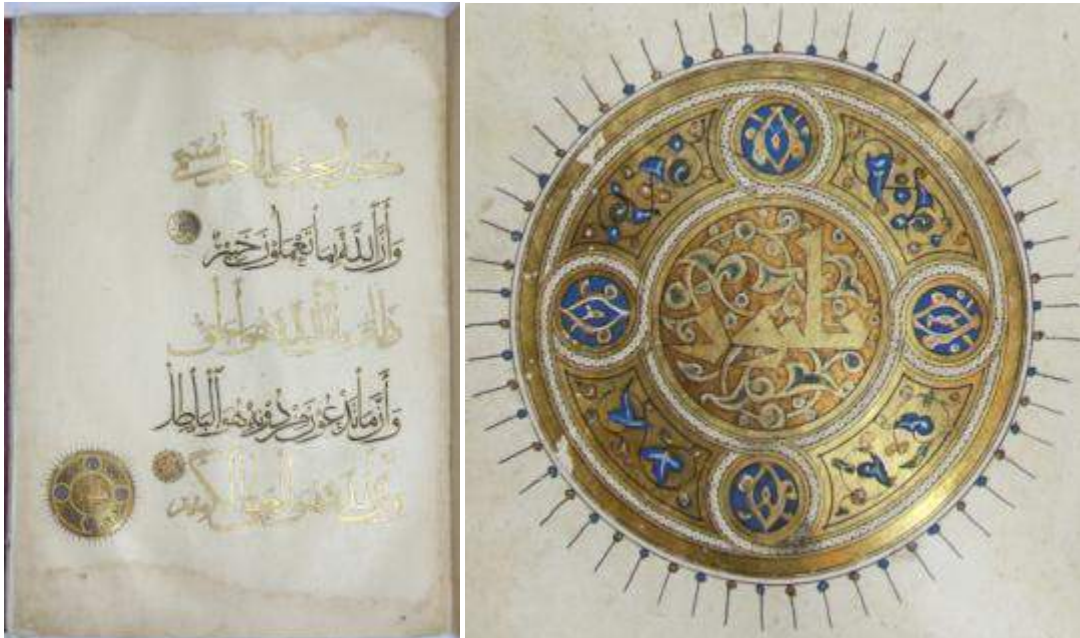 كُلٌّ يَجْرِي إِلَىٰ أَجَلٍ مُسَمًّى
وَأَنَّ اللَّهَ بِمَا تَعْمَلُونَ خَبِيرٌ
ذَٰلِكَ بِأَنَّ اللَّهَ هُوَ الْحَقُّ
وَأَنَّ مَا تَدْعُونَ مِنْ دُونِهِ الْبَاطِلُ
وَأَنَّ اللَّهَ هُوَ الْعَلِيُّ الْكَبِيرُ